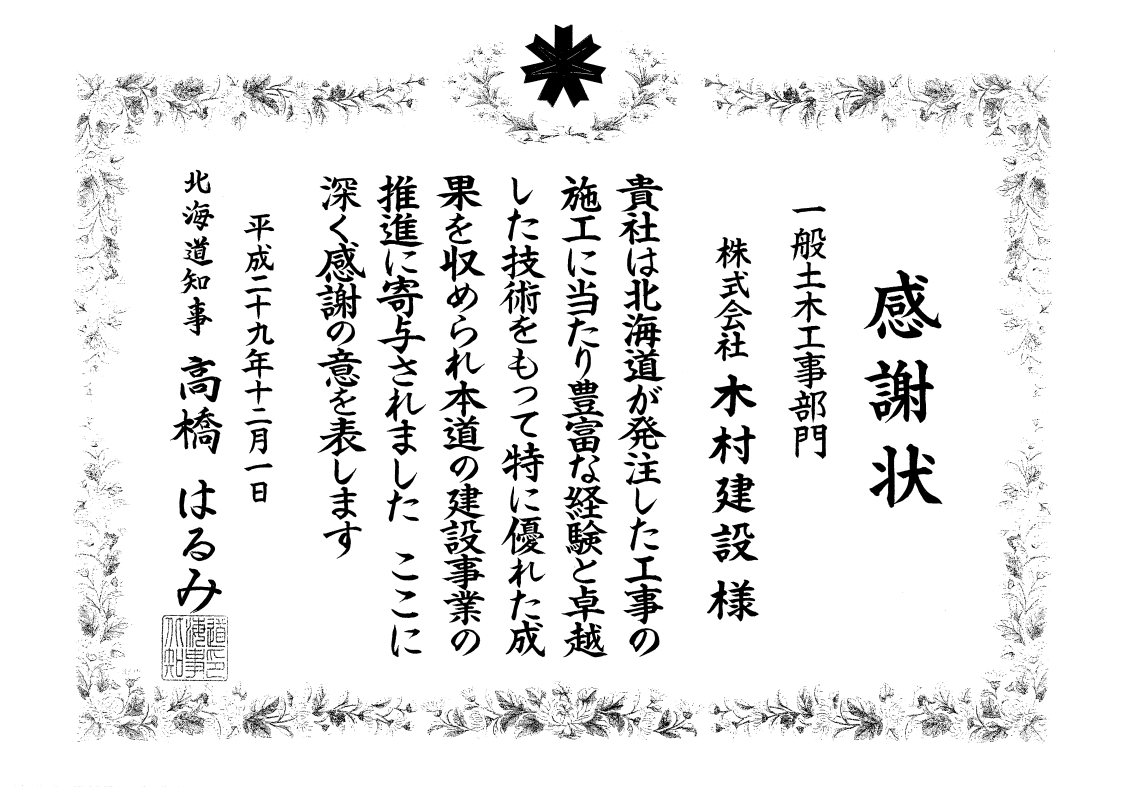 感謝状
一般土木工事部門
株式会社 木村建設 様
貴社は北海道が発注した工事の
施工に当たり豊富な経験と卓越
した技術をもって特に優れた成
果を収められ本道の建設事業の
推進に寄与されました ここに
深く感謝の意を表します
平成二十九年十二月一日
北海道知事 高橋 はるみ